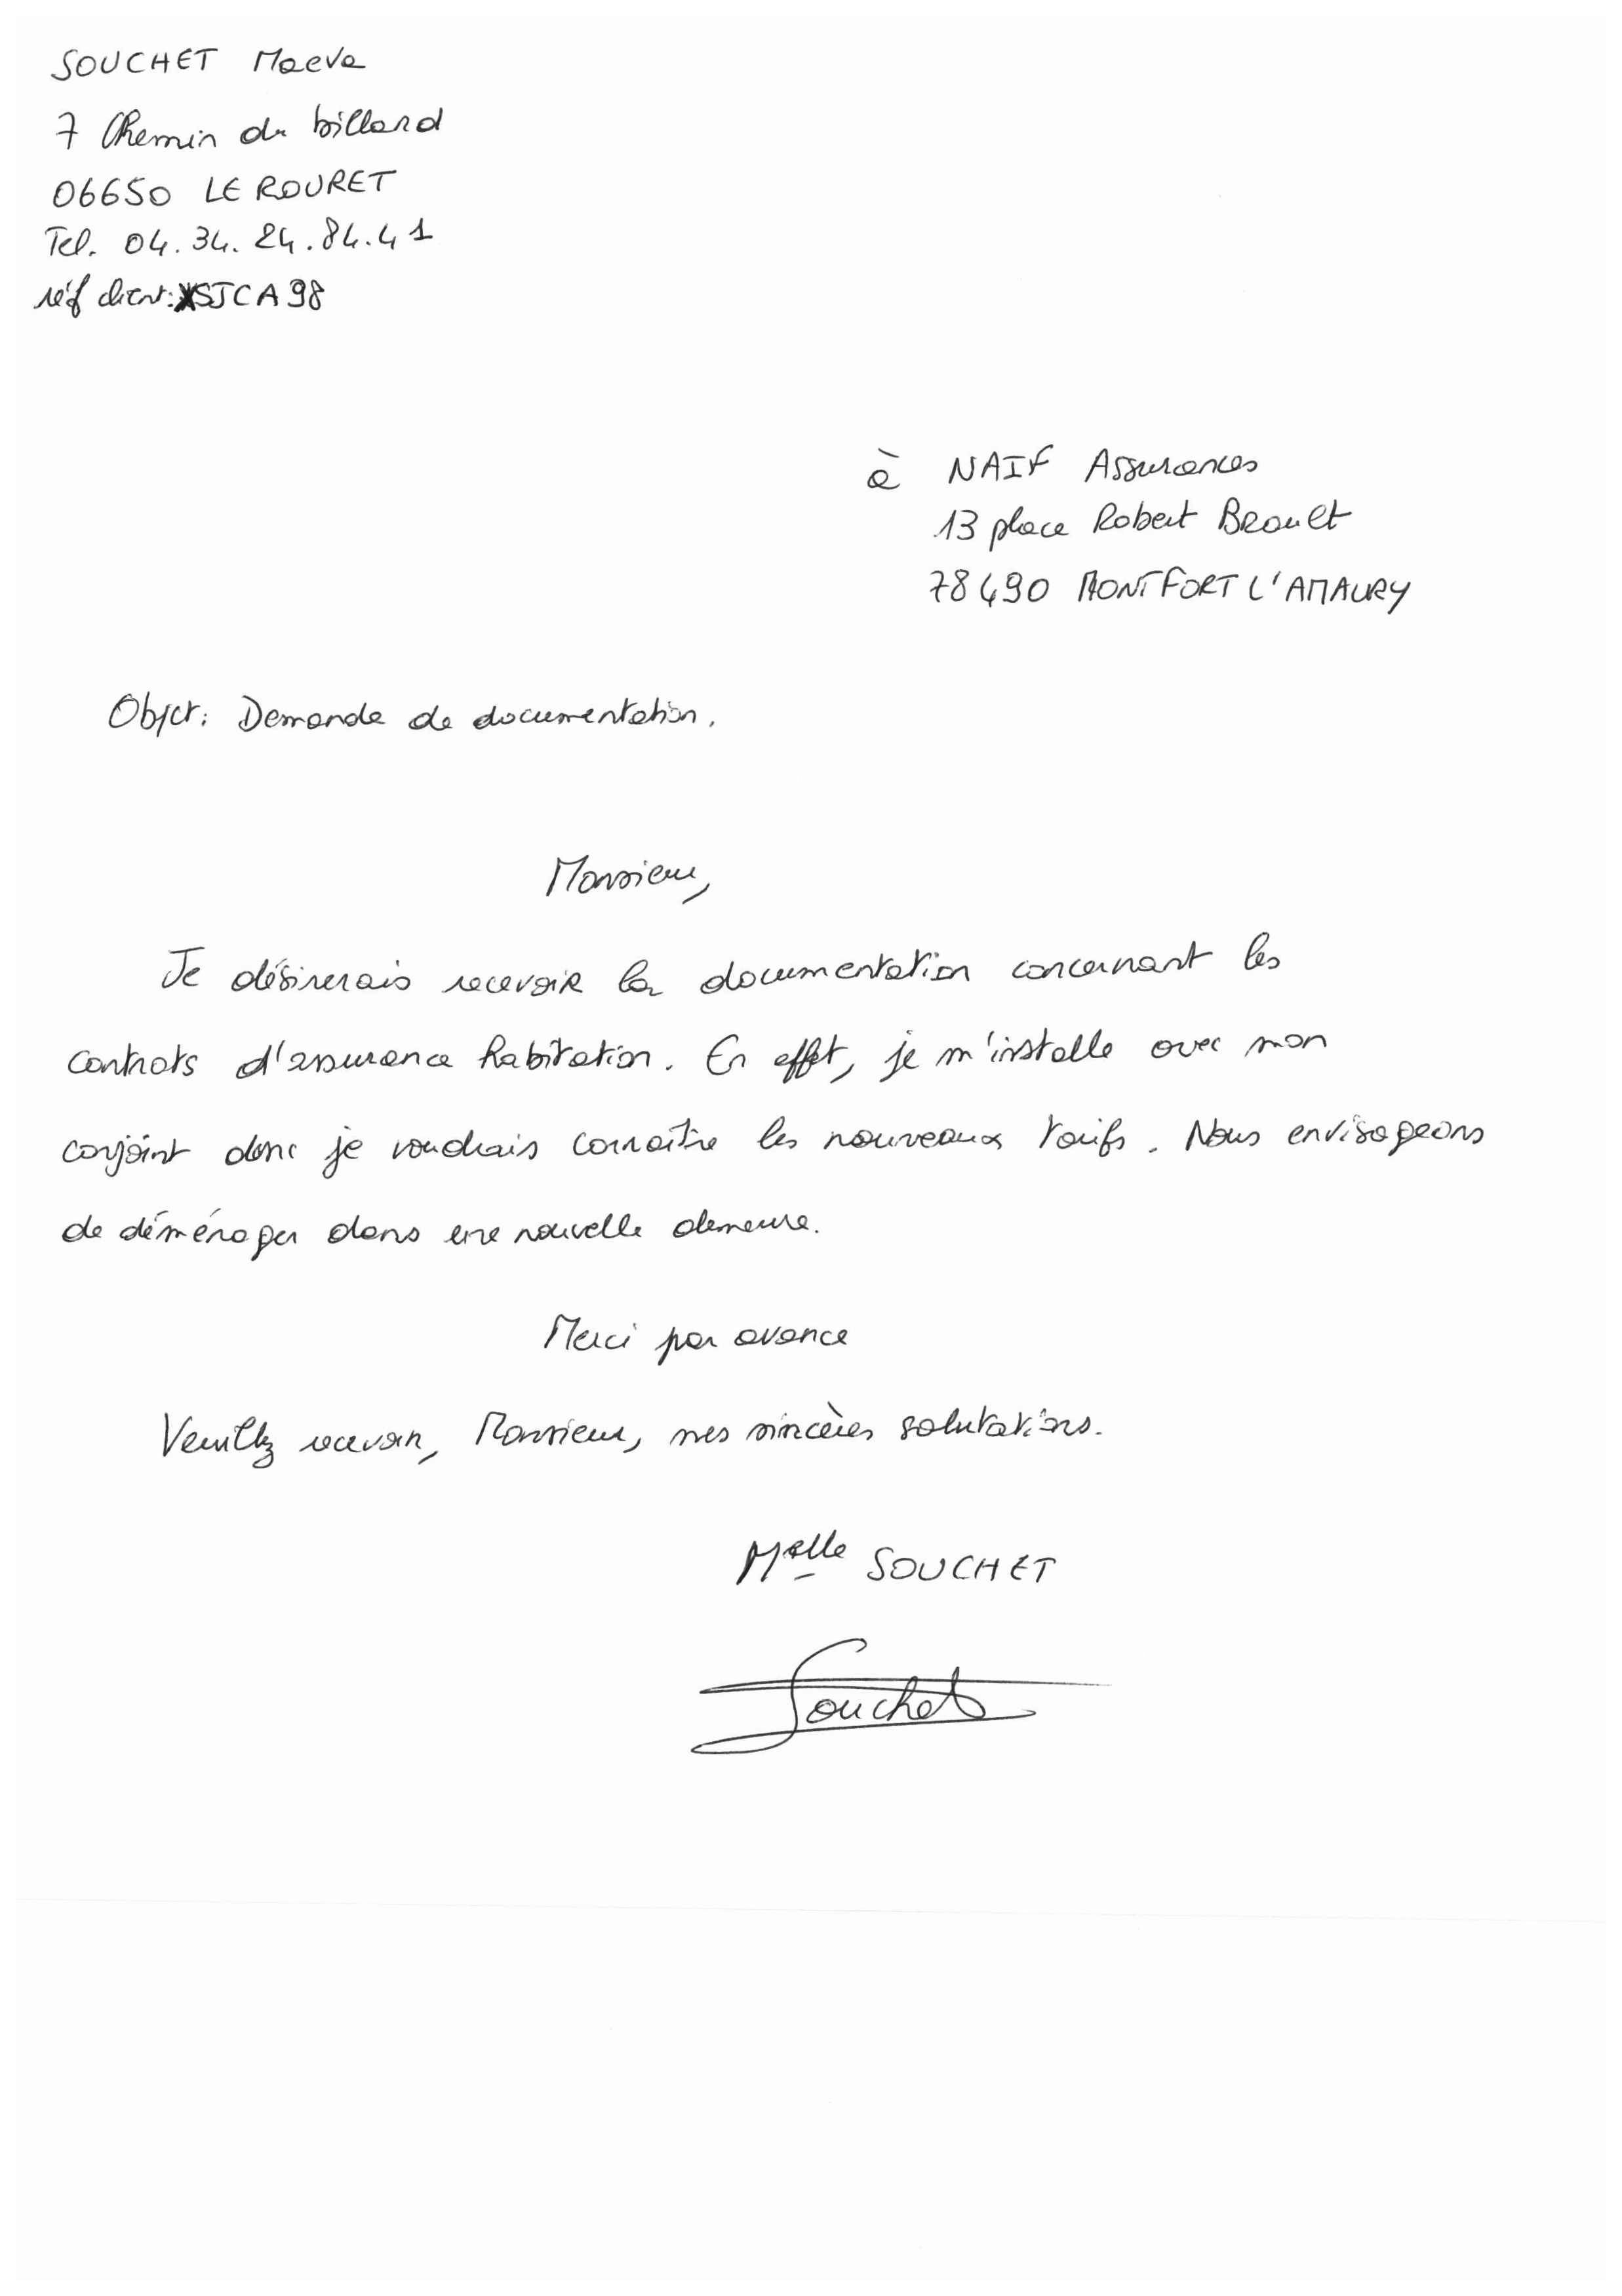 SOUCHET Maeva
7 Chemin du billard
06650 LE ROURET
Tel. 04.34.24.84.41
réf client: SJCA98
à NAIF Assurances
13 place Robert Brault
78490 MONTFORT L'AMAURY
Objet: Demande de documentation.
Monsieur,
Je désirerais recevoir la documentation concernant les
contrats d'assurance habitation. En effet, je m'installe avec mon
conjoint donc je voudrais connaître les nouveaux tarifs. Nous envisageons
de déménager dans une nouvelle demeure.
Merci par avance
Veuillez recevoir, Monsieur, mes sincères salutations.
Melle SOUCHET
Souchet